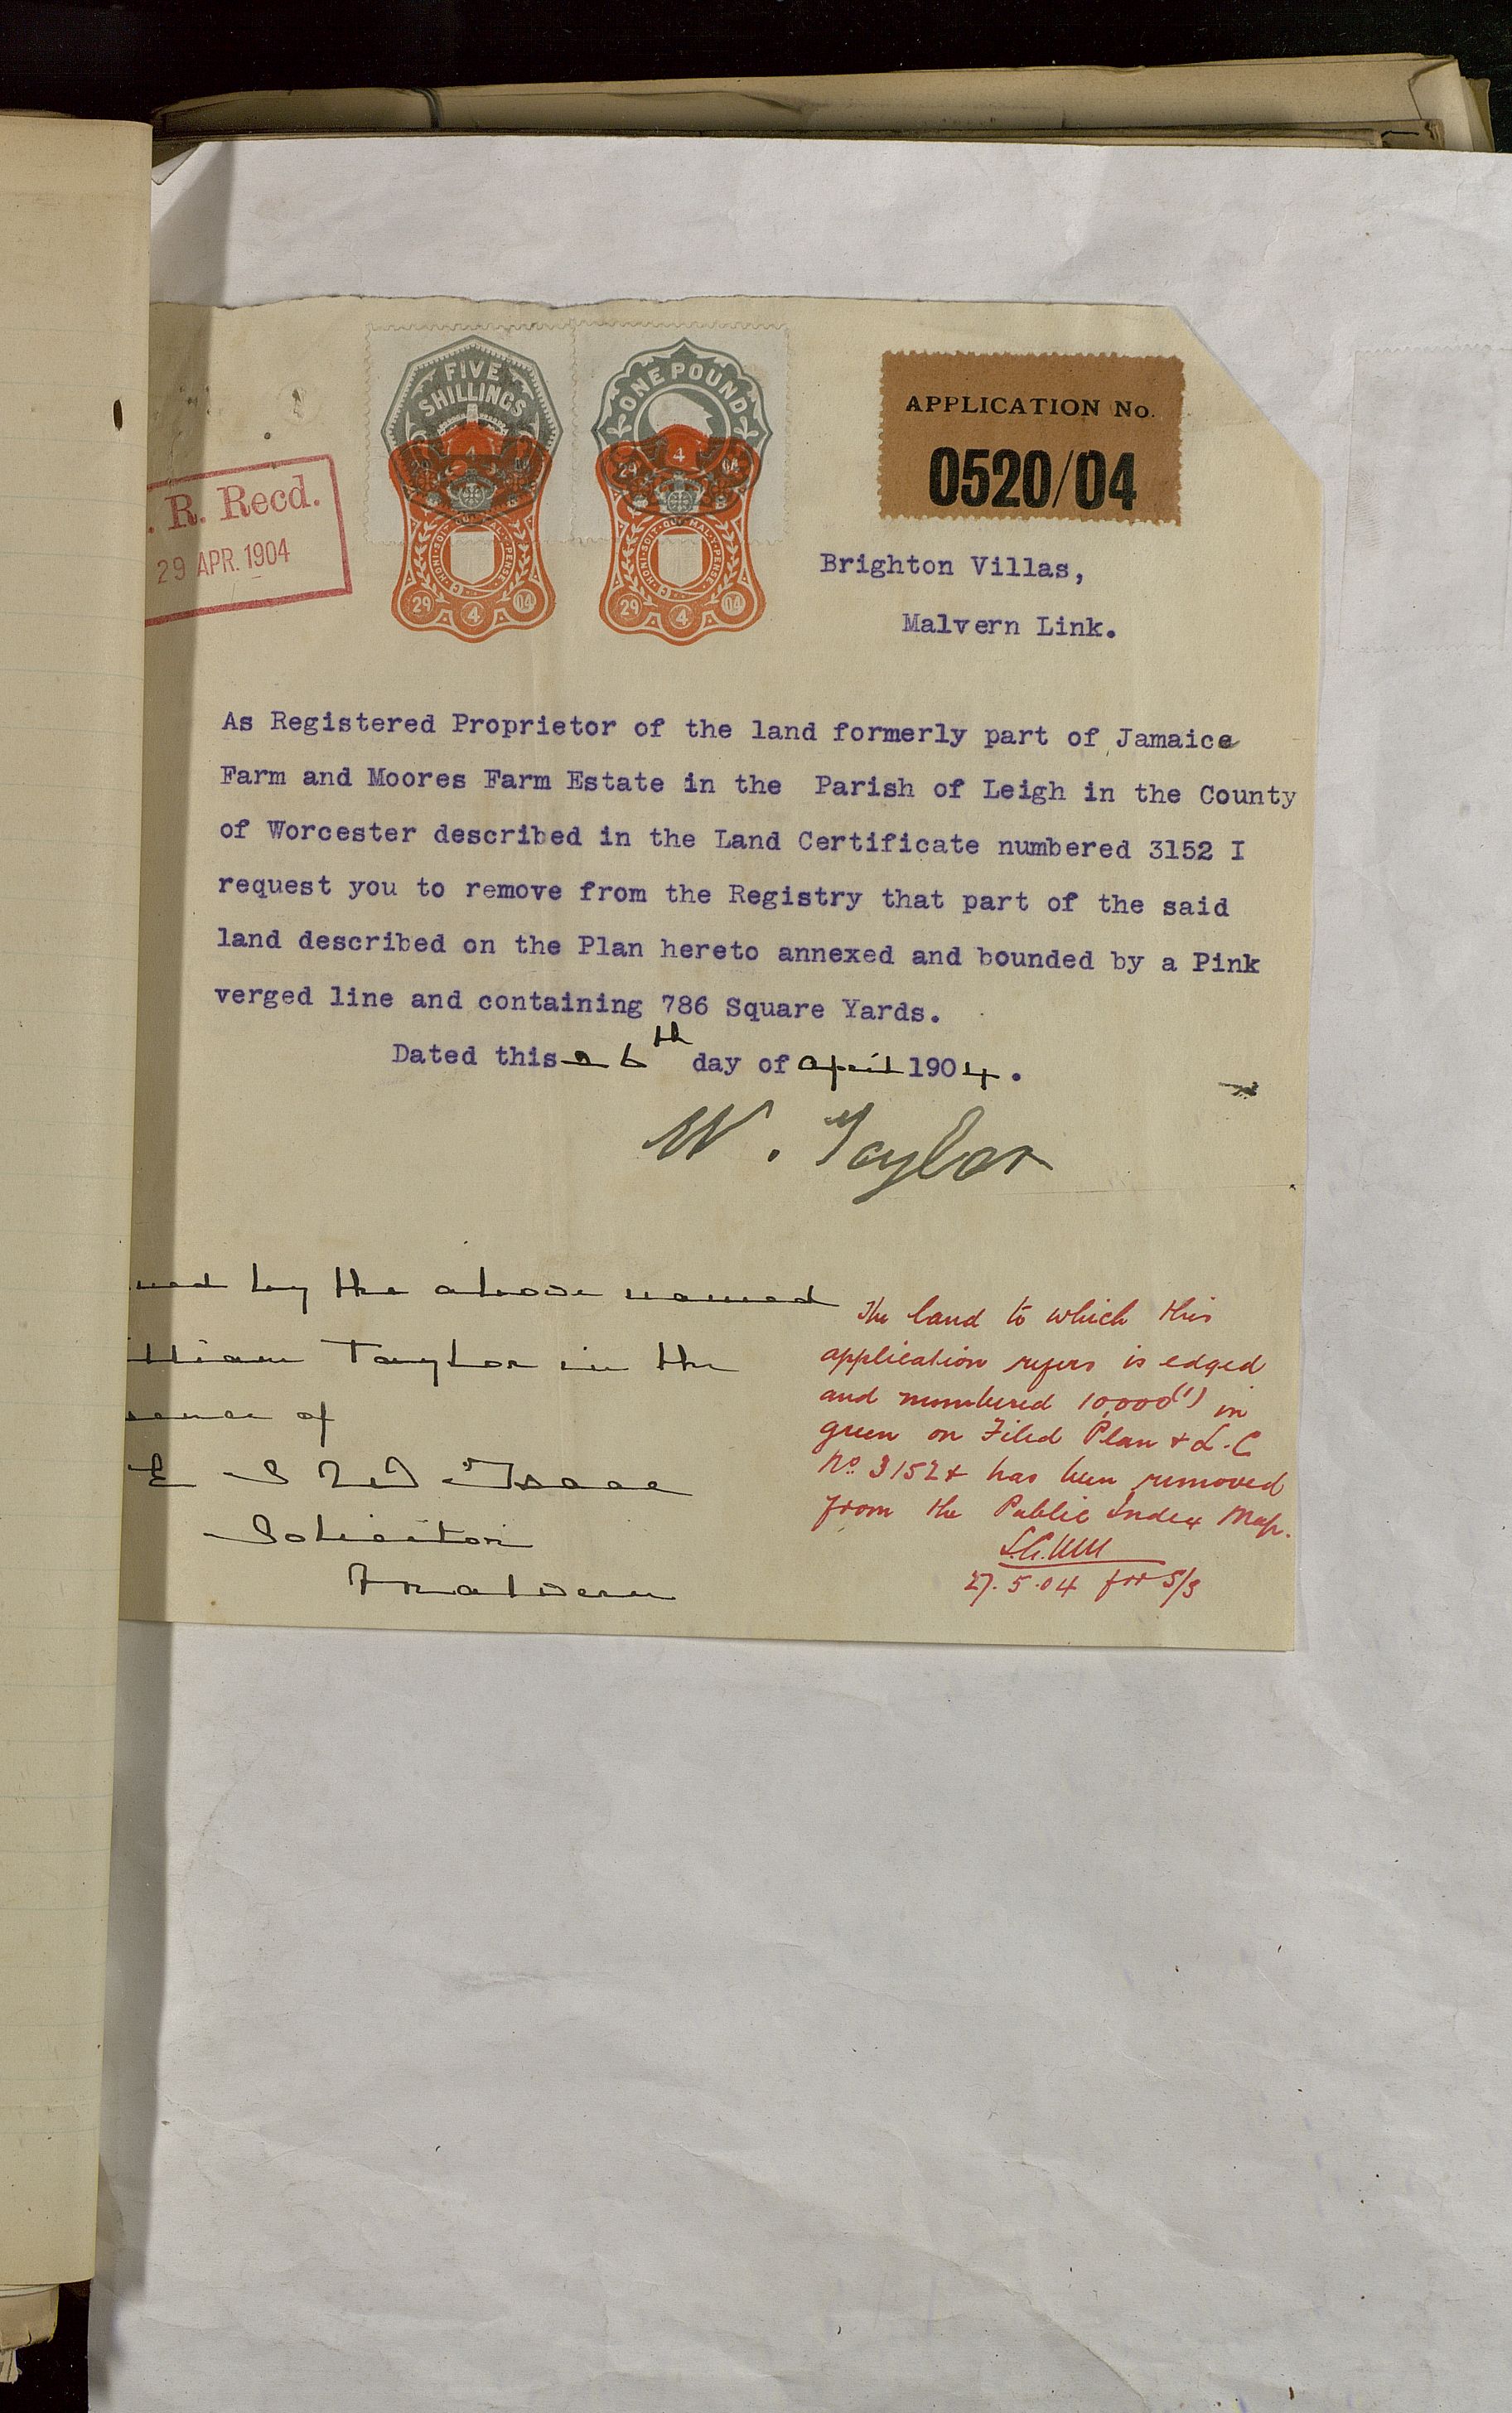 FIVE
SHILLINGS
ONE POUND
APPLICATION No.
0520/04
. R. Recd.
29 APR. 1904
29 4 04
29 4 04
HONI·SOIT·QUI·MAL·Y·PENSE
HONI·SOIT·QUI·MAL·Y·PENSE
29 4 04
29 4 04
Brighton Villas,
Malvern Link.
As Registered Proprietor of the land formerly part of Jamaica
Farm and Moores Farm Estate in the Parish of Leigh in the County
of Worcester described in the Land Certificate numbered 3152 I
request you to remove from the Registry that part of the said
land described on the Plan hereto annexed and bounded by a Pink
verged line and containing 786 Square Yards.
Dated this 26th day of April 1904.
W. Taylor
ned by the above named
lliam Taylor in the
sence of
Isaac
Solicitor
Malvern
The land to which this
application refers is edged
and numbered 10,000(1) in
green on Filed Plan & L.C
No. 3152 & has been removed
from the Public Index Map.
27.5.04 for S/S